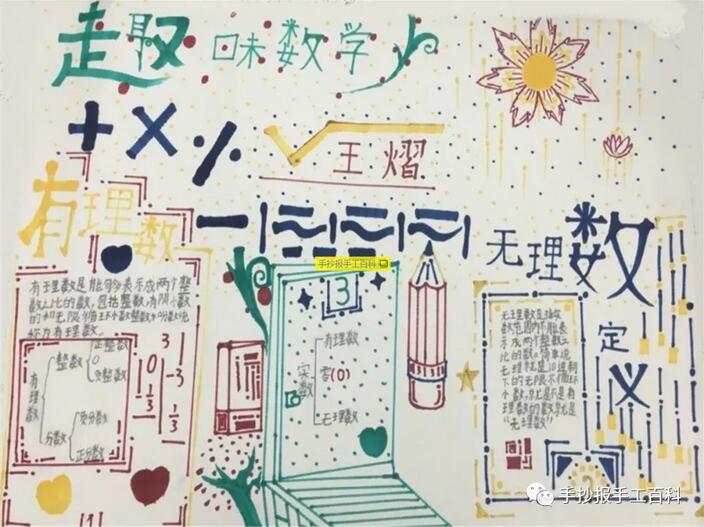 趣味数学
+ × ⁒ √
王熠
有理数
无理数
定义
手抄报手工百科
有理数是能够表示成两个整
数之比的数,包括整数,有限小数
和无限循环小数整数和分数统
称为有理数。
有理数
整数
正整数
0
负整数
分数
负分数
正分数
3
0 -3
1/3
3
实数
有理数
零(0)
无理数
示成两个整数之
比的数。简单说
无理数就是10进制
下的无限不循环
小数,
理数的数就是
"无理数"
手抄报手工百科